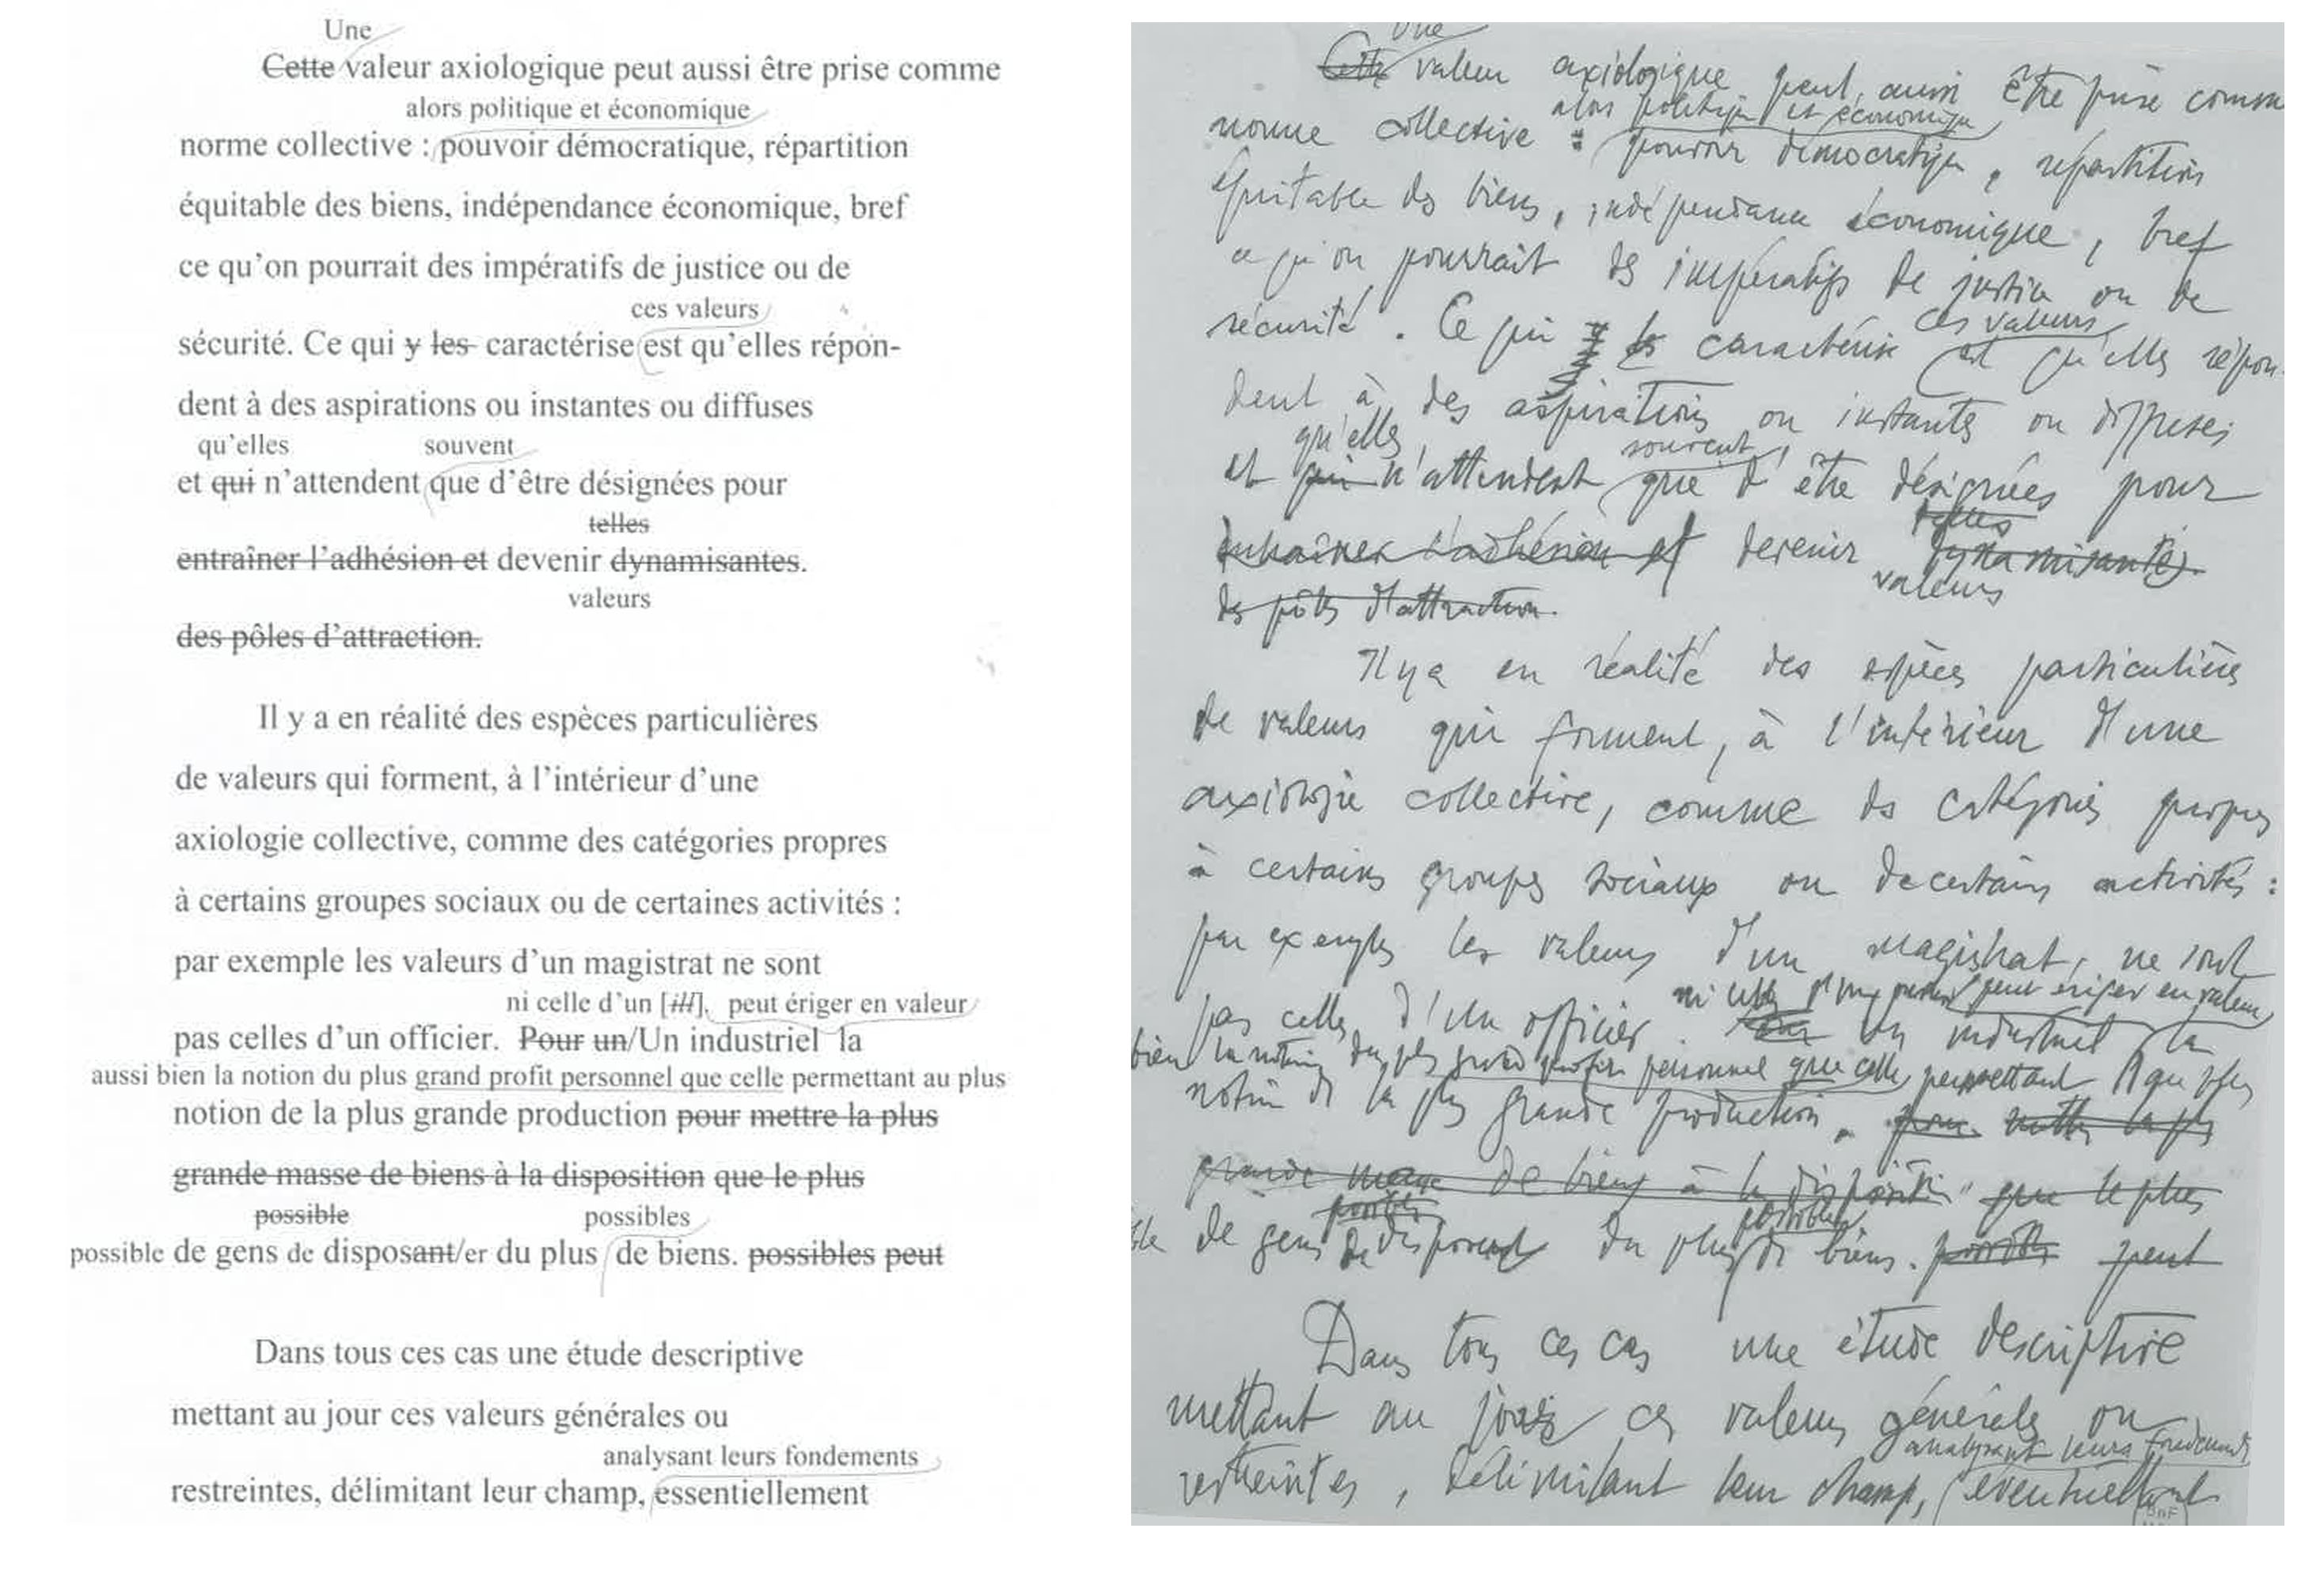 Une
Cette valeur axiologique peut aussi être prise comme
alors politique et économique
norme collective : pouvoir démocratique, répartition
équitable des biens, indépendance économique, bref
ce qu'on pourrait des impératifs de justice ou de
ces valeurs
sécurité. Ce qui y les caractérise est qu'elles répon-
dent à des aspirations ou instantes ou diffuses
qu'elles souvent
et qui n'attendent que d'être désignées pour
telles
entraîner l'adhésion et devenir dynamisantes.
valeurs
des pôles d'attraction.
Il y a en réalité des espèces particulières
de valeurs qui forment, à l'intérieur d'une
axiologie collective, comme des catégories propres
à certains groupes sociaux ou de certaines activités :
par exemple les valeurs d'un magistrat ne sont
ni celle d'un [ill]. peut ériger en valeur
pas celles d'un officier. Pour un/Un industriel la
aussi bien la notion du plus grand profit personnel que celle permettant au plus
notion de la plus grande production pour mettre la plus
grande masse de biens à la disposition que le plus
possible possibles
possible de gens de disposant/er du plus de biens. possibles peut
Dans tous ces cas une étude descriptive
mettant au jour ces valeurs générales ou
analysant leurs fondements
restreintes, délimitant leur champ, essentiellement
Une
Cette valeur axiologique peut aussi être prise comme
alors politique et économique
norme collective : pouvoir démocratique, répartition
équitable des biens, indépendance économique, bref
ce qu'on pourrait des impératifs de justice ou de
ces valeurs
sécurité. Ce qui y les caractérise est qu'elles répon-
dent à des aspirations ou instantes ou diffuses
qu'elles souvent
et qui n'attendent que d'être désignées pour
telles
entraîner l'adhésion et devenir dynamisantes.
valeurs
des pôles d'attraction.
Il y a en réalité des espèces particulières
de valeurs qui forment, à l'intérieur d'une
axiologie collective, comme des catégories propres
à certains groupes sociaux ou de certains activités :
par exemples les valeurs d'un magistrat, ne sont
ni celles d'un peut ériger en valeur
pas celles d'un officier. Pour un industriel la
bien la notion du plus grand profit personnel que celle permettant
notion de la plus grande production. pour mettre la plus
grande masse de biens à la disposition que le plus
possible possibles
de gens de disposant du plus de biens. possibles peut
Dans tous ces cas une étude descriptive
mettant au jour ces valeurs générales ou
analysant leurs fondements
restreintes, délimitant leur champ, éventuellement
BnF